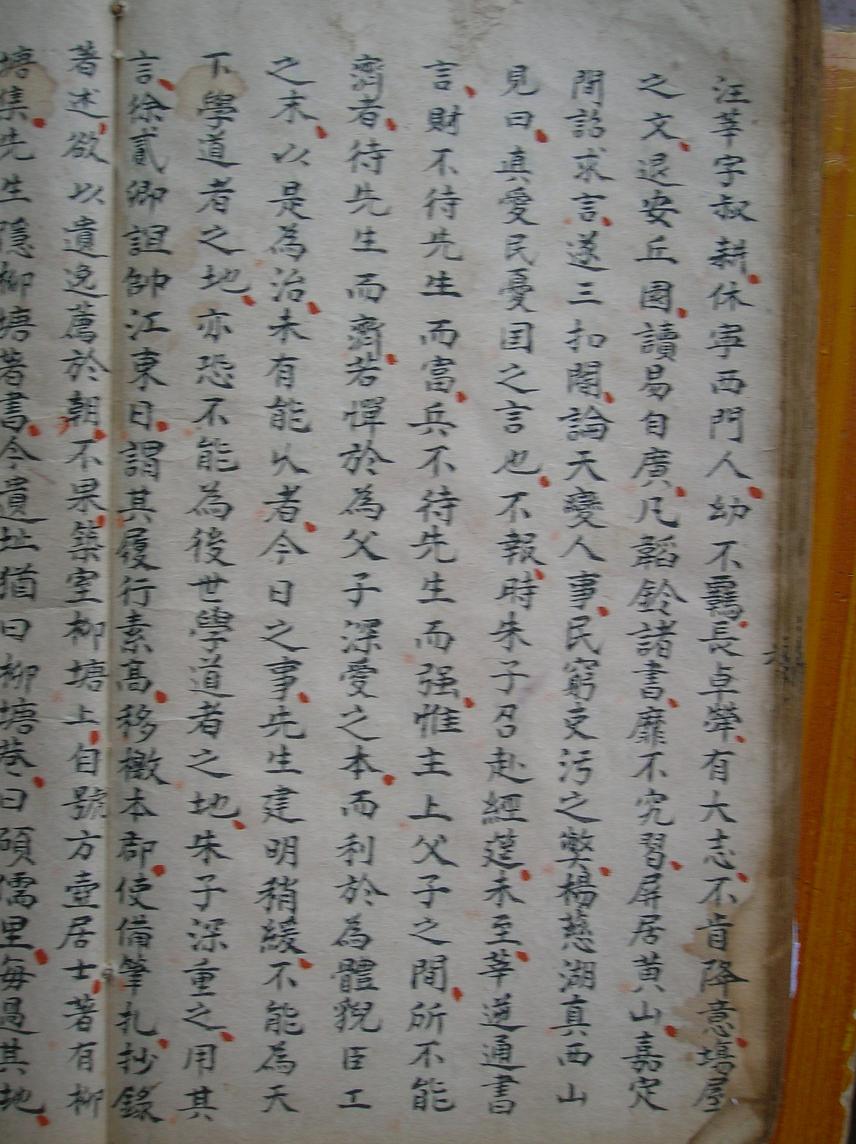 汪莘字叔耕休寧西門人幼不羈長卓犖有大志不肯降意塲屋
之文退安丘園讀易自廣凡韜鈐諸書靡不究習屏居黄山嘉定
間詔求言遂三扣閽論天變人事民窮吏污之弊楊慈湖真西山
見曰真愛民憂国之言也不報時朱子召赴經筵未至莘遂通書
言財不待先生而富兵不待先生而强惟主上父子之間所不能
齊者待先生而齊若憚於為父子深愛之本而利於為體貌臣工
之末以是為治未有能久者今日之事先生建明稍緩不能為天
下學道者之地亦恐不能為後世學道者之地朱子深重之用其
言徐貳卿誼帥江東日謂其履行素高移檄本郡使備筆札抄錄
著述欲以遺逸薦於朝不果築室柳塘上自號方壺居士著有柳
塘集先生隱柳塘著書今遺址猶曰柳塘巷曰碩儒里每過其地